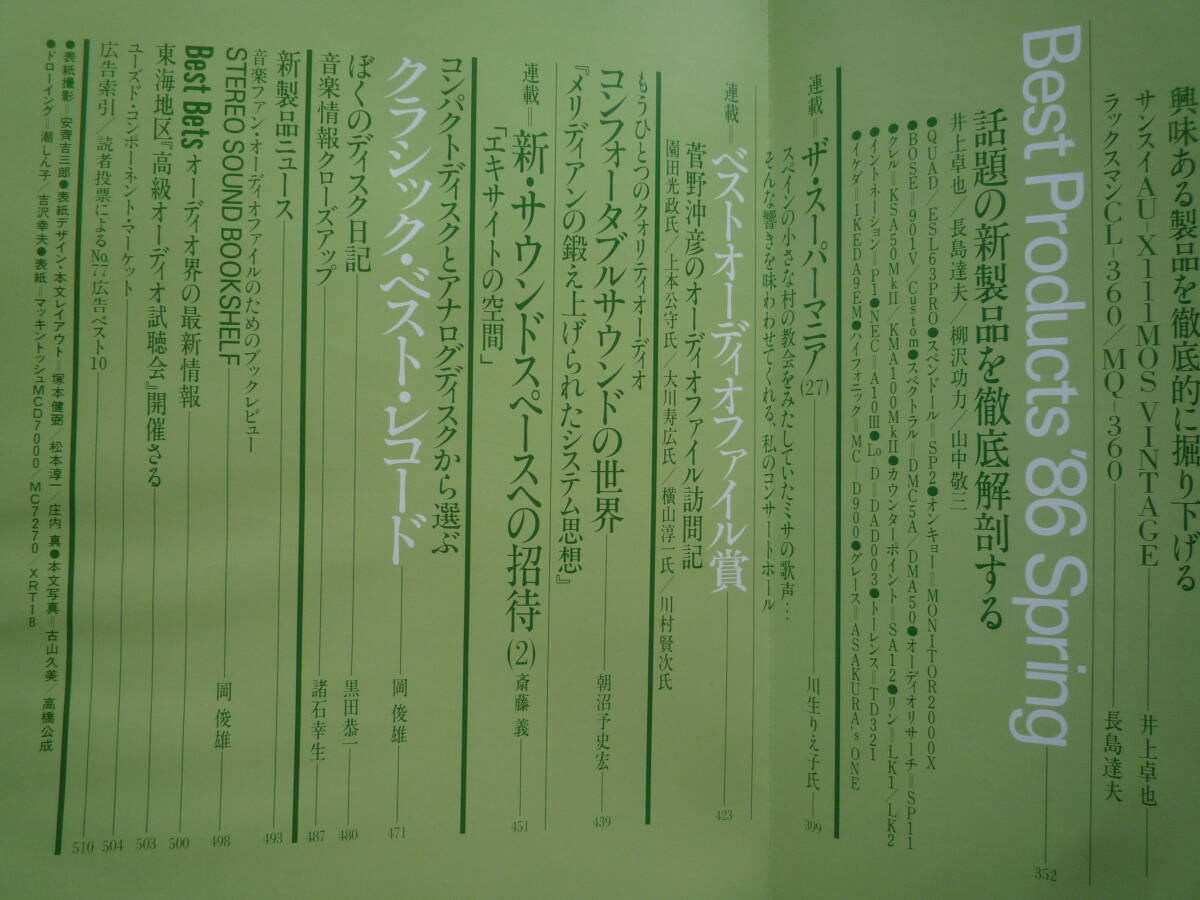 興味ある製品を徹底的に掘り下げる
サンスイAU-X111MOS VINTAGE 井上卓也
ラックスマンCL-360/MQ-360 長島達夫
Best Products '86 Spring 352
話題の新製品を徹底解剖する
井上卓也/長島達夫/柳沢功力/山中敬三
●QUAD/ESL63PRO●スペンドール=SP2●オンキョー=MONITOR2000X
●BOSE=901V/Custom●スペクトラル=DMC5A/DMA50●オーディオリサーチ=SP11
●クレル=KSA50MkII KMA100MkII●カウンターポイント=SA12●リン=LK1/LK2
●イントネーション=P1●NEC=A10III●Lo-D=DAD003●トーレンス=TD321
●イケダ=IKEDA9EM●ハイフォニック=MC-D900●グレース=ASAKURA's ONE
連載=ザ・スーパーマニア(27) 川生りえ子氏 399
スペインの小さな村の教会をみたしていたミサの歌声…
そんな響きを味わわせてくれる、私のコンサートホール
連載=ベストオーディオファイル賞 423
菅野沖彦のオーディオファイル訪問記
園田光政氏/上本公守氏/大川寿広氏/横山淳一氏/川村賢次氏
もうひとつのクォリティオーディオ
コンフォータブルサウンドの世界 朝沼予史宏 439
『メリディアンの鍛え上げられたシステム思想』
連載=新・サウンドスペースへの招待(2) 斎藤 義 451
「エキサイトの空間」
コンパクトディスクとアナログディスクから選ぶ
クラシック・ベスト・レコード 岡 俊雄 471
ぼくのディスク日記 黒田恭一 480
音楽情報クローズアップ 諸石幸生 487
新製品ニュース 493
音楽ファン・オーディオファイルのためのブックレビュー
STEREO SOUND BOOKSHELF 岡 俊雄 498
Best Bets オーディオ界の最新情報 500
東海地区『高級オーディオ試聴会』開催さる 503
ユーズド・コンポーネント・マーケット 504
広告索引/読者投票によるNo.77広告ベスト10 510
●表紙撮影=安齊吉三郎●表紙デザイン・本文レイアウト=塚本健弼/松本淳一/庄内 真●本文写真=古山久美/高橋公成
●ドローイング=潮しん子/吉沢幸夫●表紙=マッキントッシュMCD7000/MC7270/XRT18